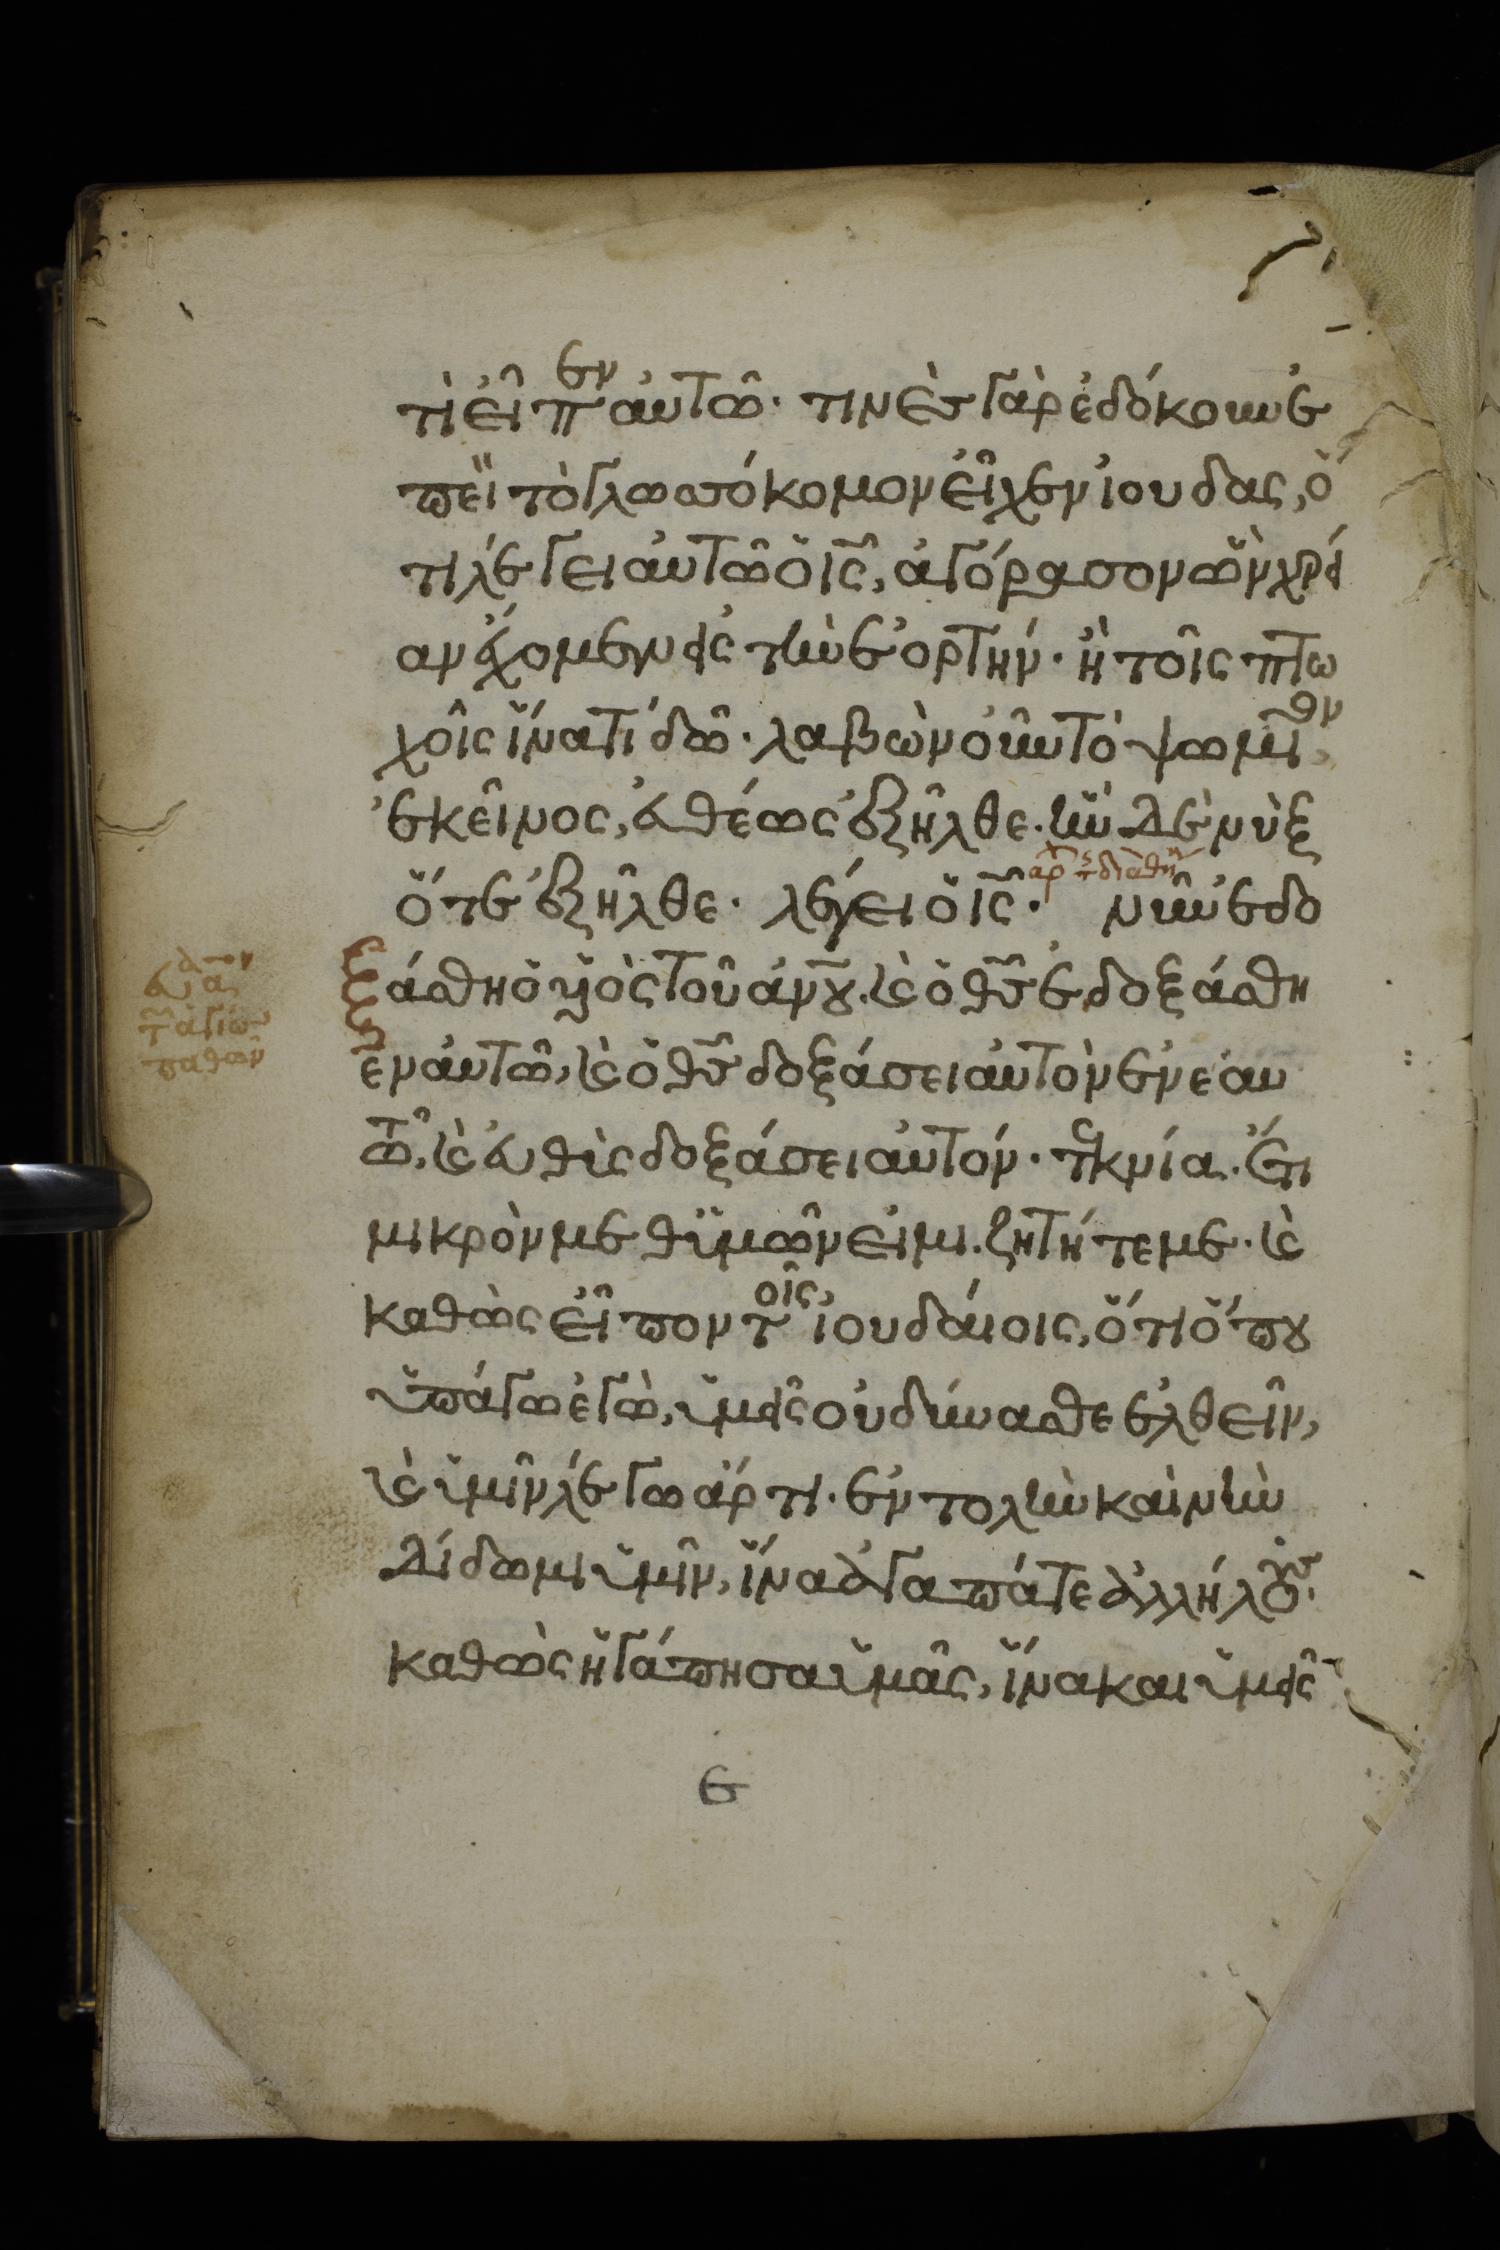 τί εἶπεν αὐτῶ· τινὲς γὰρ ἐδόκουν ἐ
πεὶ τὸ γλωσσόκομον εἶχεν ἰουδας, ὅ
τι λέγει αὐτῶ ὁ ις, ἀγόρασον ὧν χρεί
αν ἔχομεν εἰς τὴν ἑορτήν· ἢ τοῖς πτω
χοῖς ἵνα τί δῶ· λαβὼν οὖν τὸ ψωμίον
ἐκεῖνος, εὐθέως ἐξῆλθε· ἦν δὲ νὺξ
ὅτε ἐξῆλθε· λέγει ὁ ις· νῦν ἐδο
ξάσθη ὁ υἱὸς τοῦ ἀνου· κ ὁ θς ἐδοξάσθη
εν αὐτῶ, κ ὁ θς δοξάσει αὐτὸν ἐν ἑαυ
τῶ, κ εὐθὺς δοξάσει αὐτόν· τεκνία· ἔτι
μικρὸν μεθ ὑμῶν εἰμι· ζητήτε με· κ
καθὼς εἶπον τοῖς ἰουδάιοις, ὅτι ὅπου
ὑπάγω ἐγὼ, ὑμεῖς οὐ δύνασθε ἐλθεῖν,
κ ὑμῖν λέγω ἄρτι· ἐντολὴν καὶνὴν
δίδωμι ὑμῖν, ἵνα ἀγαπάτε ἀλλήλους·
καθὼς ἠγάπησα ὑμᾶς, ἵνα και ὑμεῖς